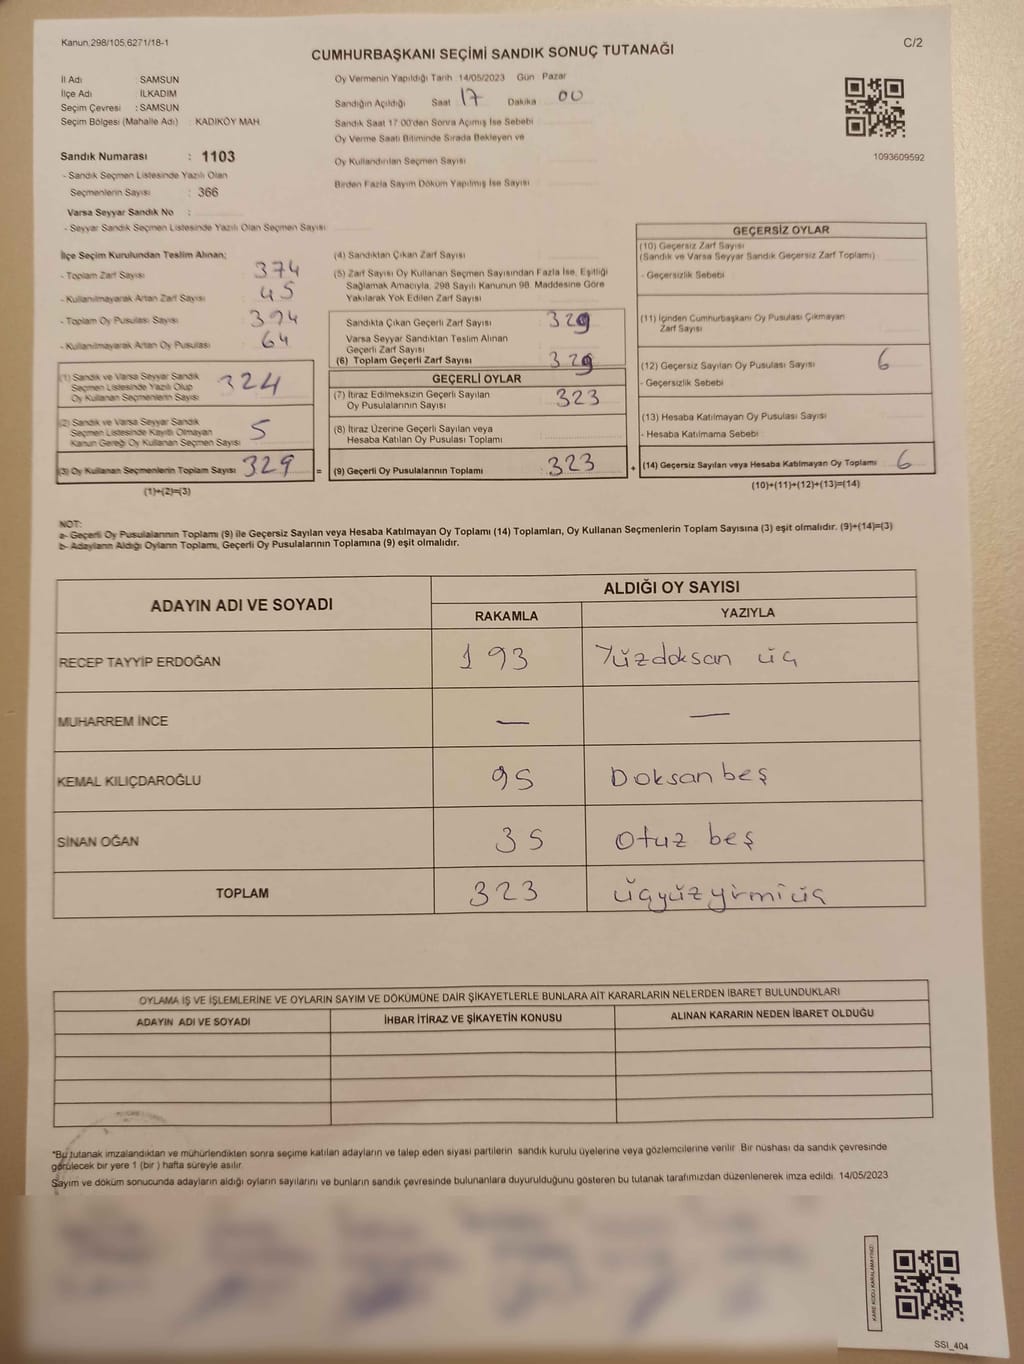 Kanun,298/105,6271/18-1
C/2
CUMHURBAŞKANI SEÇİMİ SANDIK SONUÇ TUTANAĞI
İl Adı : SAMSUN
İlçe Adı : İLKADIM
Seçim Çevresi : SAMSUN
Seçim Bölgesi (Mahalle Adı) : KADIKÖY MAH.
Oy Vermenin Yapıldığı Tarih 14/05/2023 Gün Pazar
Sandığın Açıldığı Saat 17 Dakika 00
Sandık Saat 17:00'den Sonra Açımış İse Sebebi
Oy Verme Saati Bitiminde Sırada Bekleyen ve
Oy Kullandırılan Seçmen Sayısı
Birden Fazla Sayım Döküm Yapılmış İse Sayısı
1093609592
Sandık Numarası : 1103
- Sandık Seçmen Listesinde Yazılı Olan
Seçmenlerin Sayısı : 366
Varsa Seyyar Sandık No :
- Seyyar Sandık Seçmen Listesinde Yazılı Olan Seçmen Sayısı
İlçe Seçim Kurulundan Teslim Alınan;
- Toplam Zarf Sayısı 374
- Kullanılmayarak Artan Zarf Sayısı 45
- Toplam Oy Pusulası Sayısı 394
- Kullanılmayarak Artan Oy Pusulası 64
(1) Sandık ve Varsa Seyyar Sandık
Seçmen Listesinde Yazılı Olup
Oy Kullanan Seçmenlerin Sayısı 324
(2) Sandık ve Varsa Seyyar Sandık
Seçmen Listesinde Kayıtlı Olmayan
Kanun Gereği Oy Kullanan Seçmen Sayısı 5
(3) Oy Kullanan Seçmenlerin Toplam Sayısı 329 =
(1)+(2)=(3)
(4) Sandıktan Çıkan Zarf Sayısı
(5) Zarf Sayısı Oy Kullanan Seçmen Sayısından Fazla İse, Eşitliği
Sağlamak Amacıyla, 298 Sayılı Kanunun 98. Maddesine Göre
Yakılarak Yok Edilen Zarf Sayısı
Sandıkta Çıkan Geçerli Zarf Sayısı 329
Varsa Seyyar Sandıktan Teslim Alınan
Geçerli Zarf Sayısı
(6) Toplam Geçerli Zarf Sayısı 329
GEÇERLİ OYLAR
(7) İtiraz Edilmeksizin Geçerli Sayılan
Oy Pusulalarının Sayısı 323
(8) İtiraz Üzerine Geçerli Sayılan veya
Hesaba Katılan Oy Pusulası Toplamı
(9) Geçerli Oy Pusulalarının Toplamı 323 +
GEÇERSİZ OYLAR
(10) Geçersiz Zarf Sayısı
(Sandık ve Varsa Seyyar Sandık Geçersiz Zarf Toplamı)
- Geçersizlik Sebebi
(11) İçinden Cumhurbaşkanı Oy Pusulası Çıkmayan
Zarf Sayısı
(12) Geçersiz Sayılan Oy Pusulası Sayısı 6
- Geçersizlik Sebebi
(13) Hesaba Katılmayan Oy Pusulası Sayısı
- Hesaba Katılmama Sebebi
(14) Geçersiz Sayılan veya Hesaba Katılmayan Oy Toplamı 6
(10)+(11)+(12)+(13)=(14)
NOT:
a- Geçerli Oy Pusulalarının Toplamı (9) ile Geçersiz Sayılan veya Hesaba Katılmayan Oy Toplamı (14) Toplamları, Oy Kullanan Seçmenlerin Toplam Sayısına (3) eşit olmalıdır. (9)+(14)=(3)
b- Adayların Aldığı Oyların Toplamı, Geçerli Oy Pusulalarının Toplamına (9) eşit olmalıdır.
ADAYIN ADI VE SOYADI
ALDIĞI OY SAYISI
RAKAMLA YAZIYLA
RECEP TAYYİP ERDOĞAN 193 Yüzdoksan üç
MUHARREM İNCE — —
KEMAL KILIÇDAROĞLU 95 Doksan beş
SİNAN OĞAN 35 Otuz beş
TOPLAM 323 üçyüzyirmiüç
OYLAMA İŞ VE İŞLEMLERİNE VE OYLARIN SAYIM VE DÖKÜMÜNE DAİR ŞİKAYETLERLE BUNLARA AİT KARARLARIN NELERDEN İBARET BULUNDUKLARI
ADAYIN ADI VE SOYADI İHBAR İTİRAZ VE ŞİKAYETİN KONUSU ALINAN KARARIN NEDEN İBARET OLDUĞU
*Bu tutanak imzalandıktan ve mühürlendikten sonra seçime katılan adayların ve talep eden siyasi partilerin sandık kurulu üyelerine veya gözlemcilerine verilir. Bir nüshası da sandık çevresinde
görülecek bir yere 1 (bir) hafta süreyle asılır.
Sayım ve döküm sonucunda adayların aldığı oyların sayılarını ve bunların sandık çevresinde bulunanlara duyurulduğunu gösteren bu tutanak tarafımızdan düzenlenerek imza edildi. 14/05/2023
KARE KODU KARALAMAYINIZ!
SSİ_404